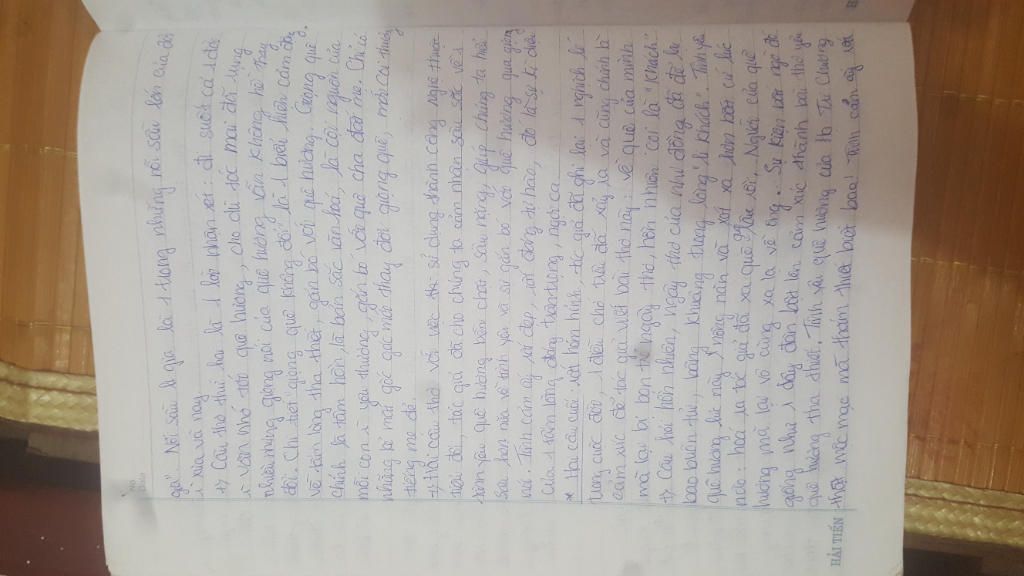 giả. Nỗi sầu li gia là 1 trong những nỗi sầu lớn của đời
xưa và nay
+) Câu thơ thứ hai là 1 lời nhận xét: đi suốt cả 1 đời
vẫn nhớ tới quê hương, cho dù tóc mai đã rụng
nhiều nhưng giọng nói của quê hương vẫn không hề thay
đổi. Chi tiết "giọng quê không đổi" là 1 biểu hiện cảm động
về tấm lòng tha thiết, gắn bó với quê hương. Giọng quê
chính là tâm hồn, là bản sắc văn hoá, là cội nguồn của
mỗi con yêu thương, gắn bó với quê cha đất mẹ. Chỉ có
những kẻ mất gốc gác mới thay đổi giọng quê, mới coi thường
tiếng mẹ đẻ.
+) Hai câu thơ với việc sử dụng thành công nghệ thuật
tiểu đối, tác giả đã cho chúng ta cảm nhận sâu sắc về 1
tình yêu quê hương bền chặt, sâu nặng, giúp chúng ta hiểu
sâu hơn nữa về tình yêu và sự gắn bó với quê hương qua giọng
nói. Tình cảm ấy rất đẹp, rất đáng tự hào, đó là sự kì diệu
của 1 tấm lòng đáng trân trọng, ngợi ca.
* Hai câu cuối rất hóm hỉnh, tác giả đã ghi lại 1 nghịch lí
trong cuộc đời, 1 điều chớ trêu đã xảy ra và cũng chính là
cảm xúc để tác giả viết bài thơ này: về quê của mình
mà lại bị bọn trẻ ngây thơ, hồn nhiên coi là "khách"
+) Câu hỏi hồn nhiên, ngây thơ của nhi đồng đã để lại
bao buồn tủi, bâng khuâng trong lòng "li khách". Tình yêu
quê hương lúc này nồng nàn và xót xa hơn bao giờ lúc
nào: hoá ra tác giả đã xa quê quá lâu rồi. Người của quê
hương mà lại vô cùng xa lạ về ông. Sự kiện bất ngờ đó
giống như 1 dây đàn bật lên cảm xúc thành bài thơ yêu
quê hương tha thiết. Tình yêu quê hương của Hạ Tri Chương
thật mộc mạc mà thắm thiết biết bao! Tình cảm ấy rất
HẢI TIẾN